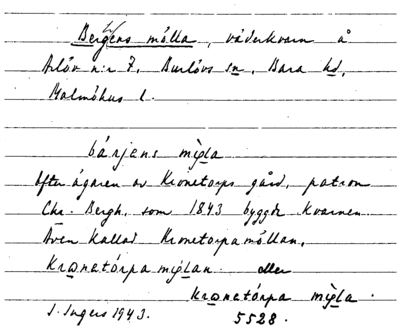 Bergens mölla, väderkvarn å
Arlöv n:r 7, Burlövs sn, Bara hd,
Malmöhus l.
bárjens mìg̨la
Efter ägaren av Kronetorps gård, patron
Chr. Bergh, som 1843 byggde kvarnen.
Även kallad Kronetorpamöllan,
krɷnetórpa mìg̨lan eller
krɷnetórpa mìg̨la.
I. Ingers 1943.
5528.